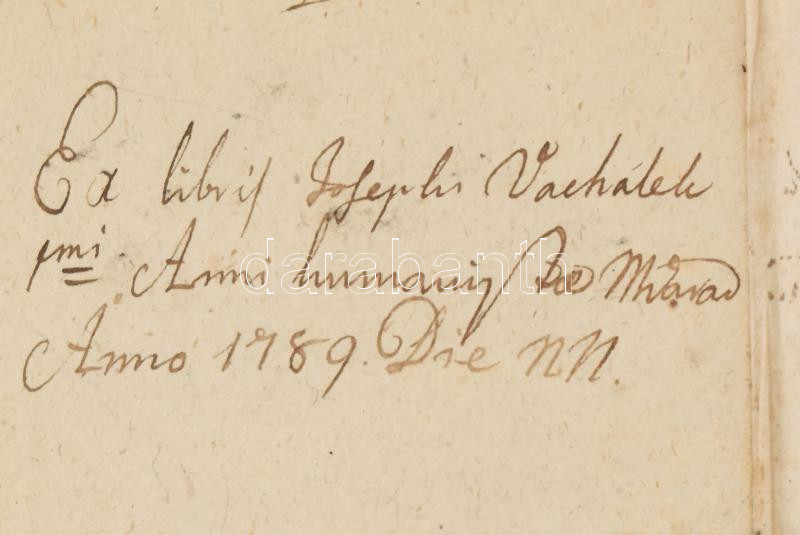 Ex libris Josephi Vachálek
pmi Anni humanis
Anno 1789. Die NN.
darabanth